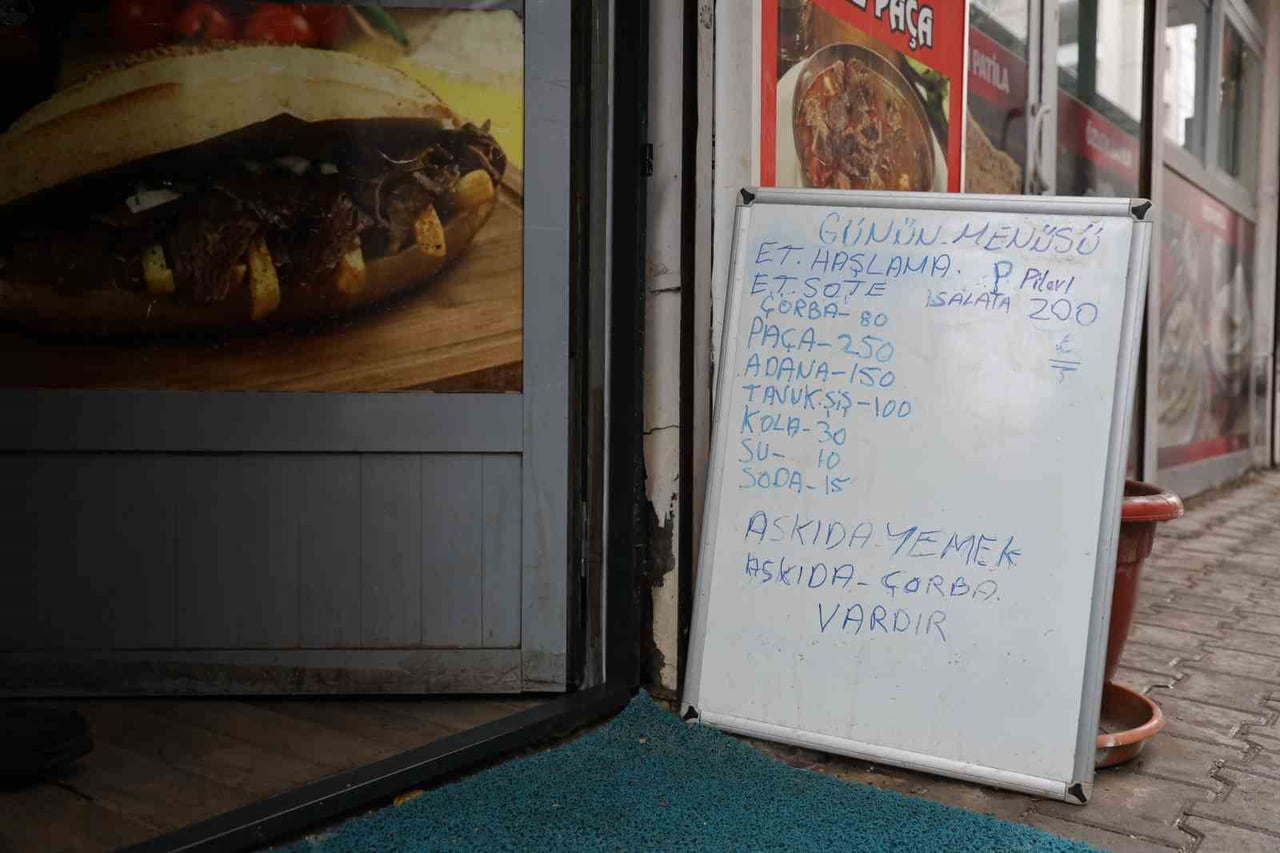 PAÇA
PATİLA
GÜNÜN.MENÜSÜ
ET.HAŞLAMA. P Pilavl
ET.SOTE SALATA 200
₺
ÇORBA-80
PAÇA-250
ADANA-150
TAVUK.ŞİŞ-100
KOLA-30
SU- 10
SODA-15
ASKIDA YEMEK
ASKIDA-ÇORBA.
VARDIR